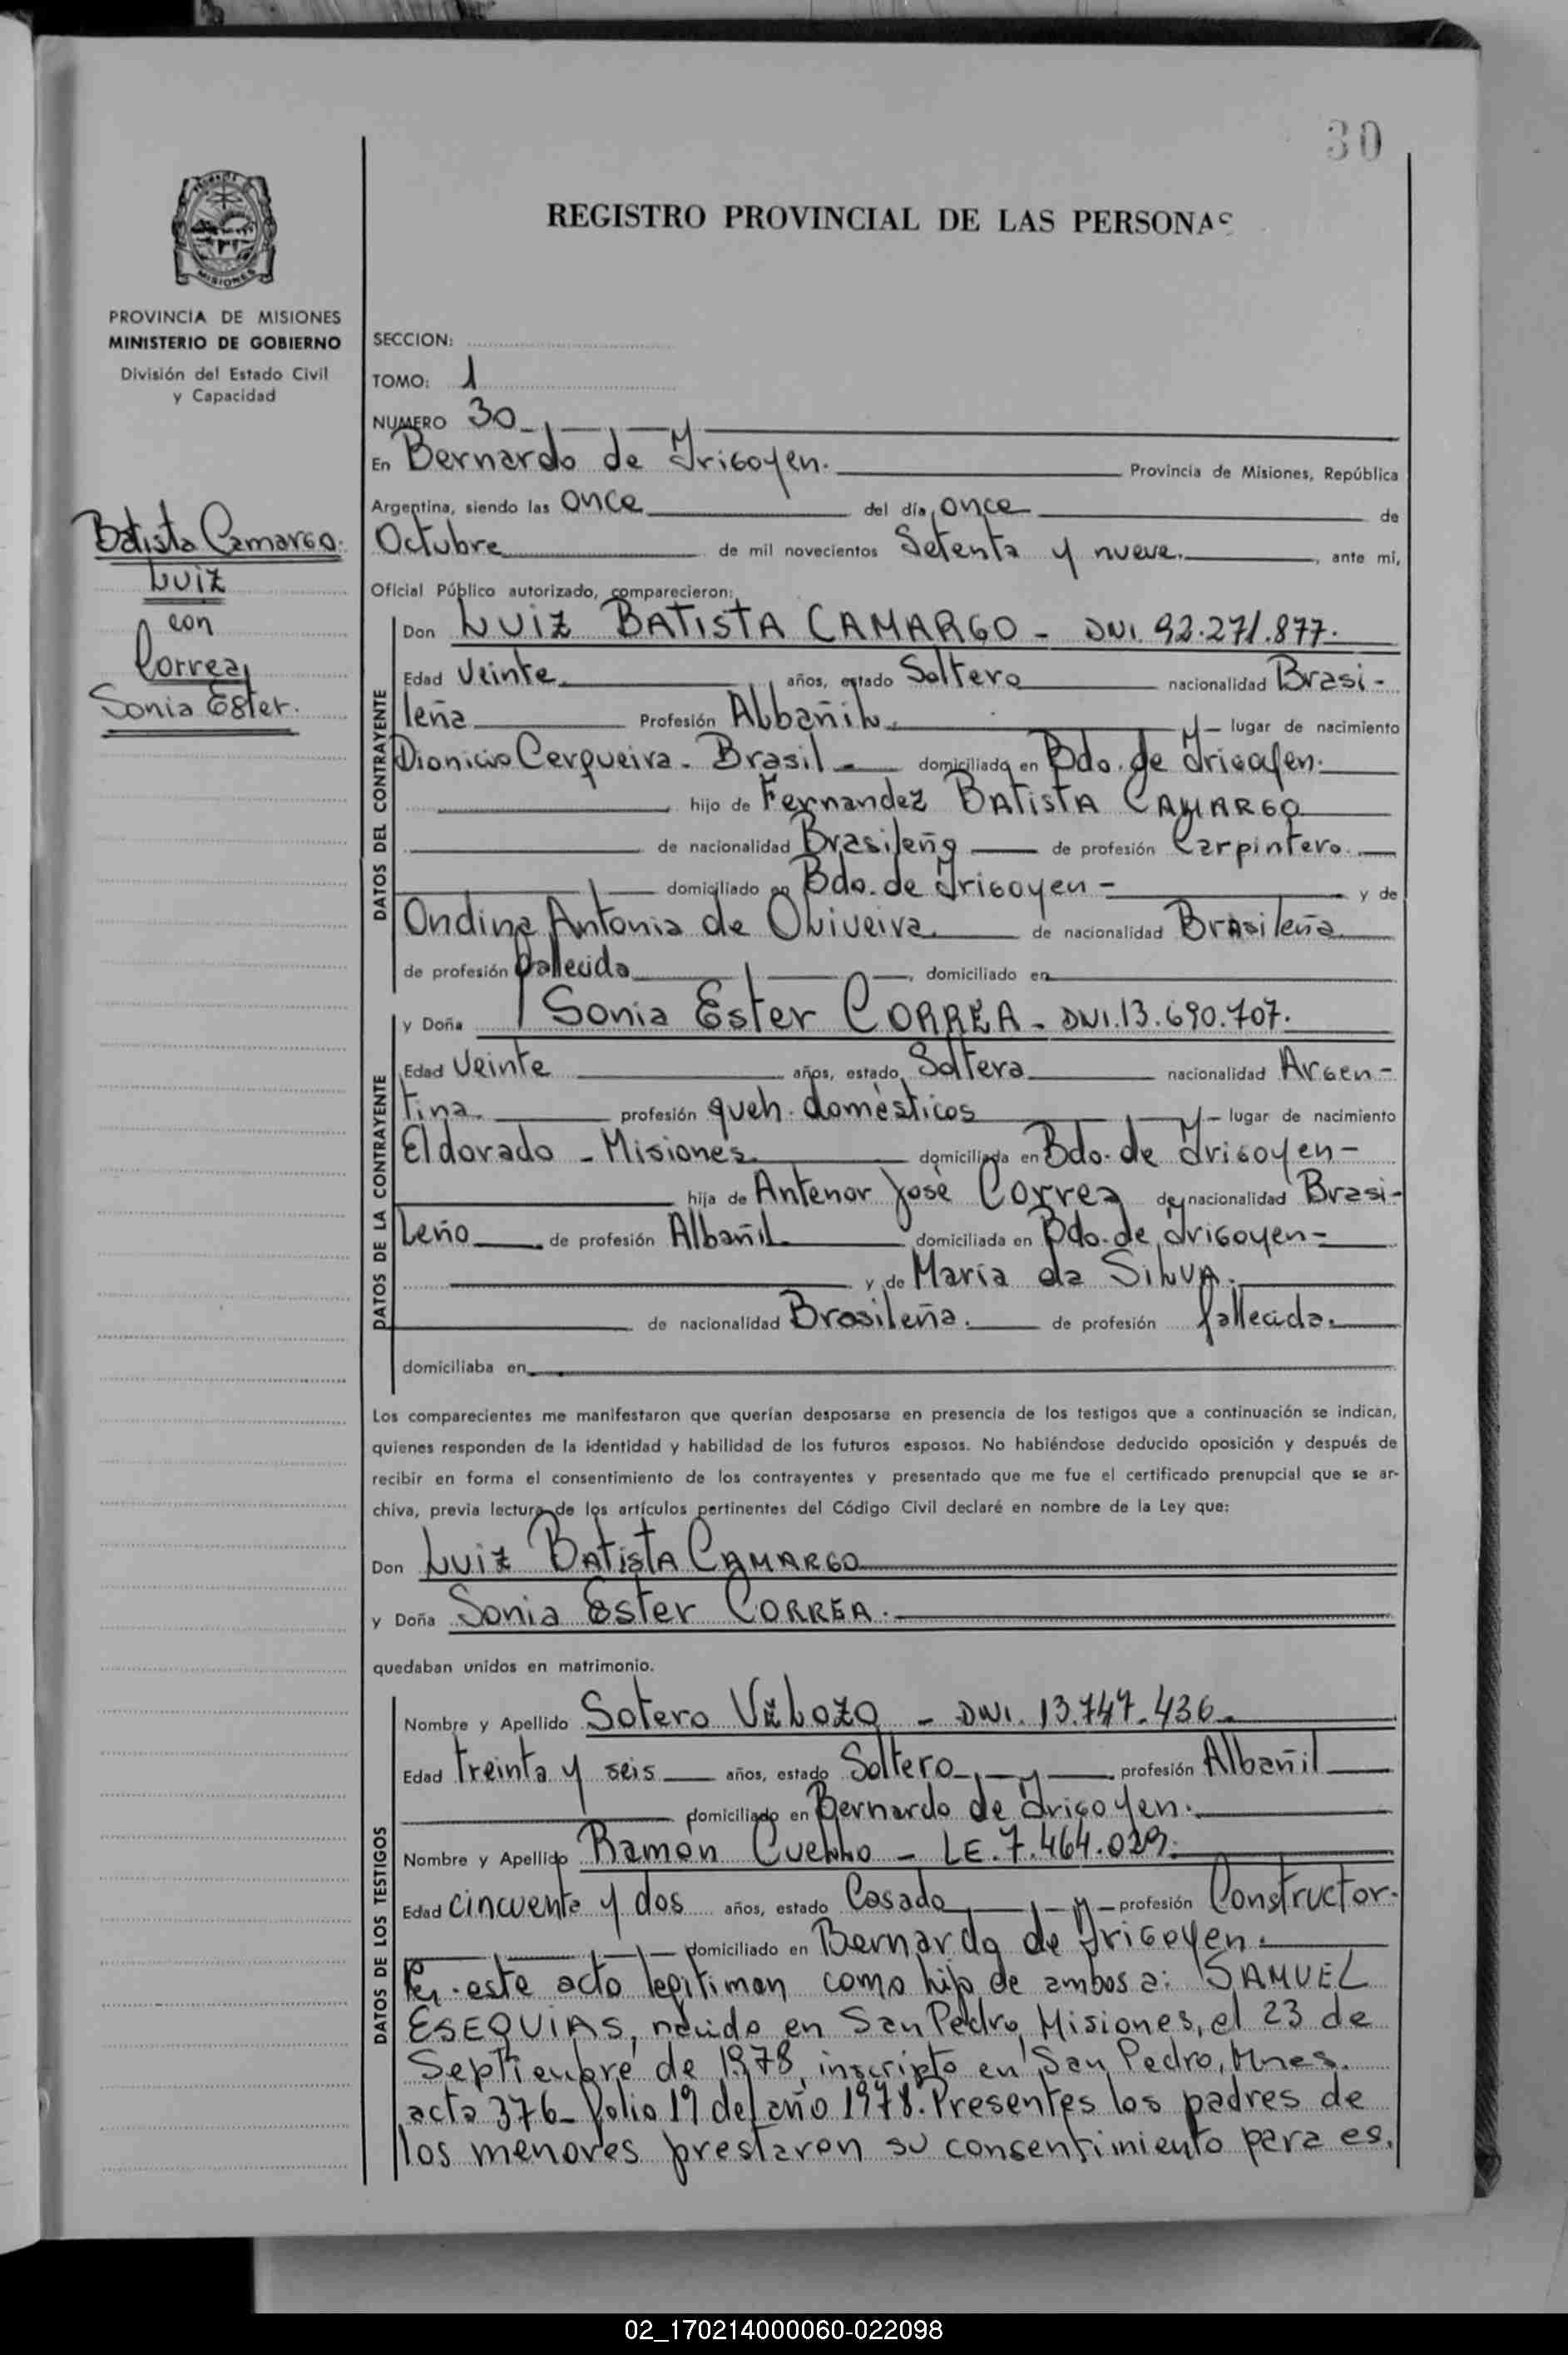 30
REGISTRO PROVINCIAL DE LAS PERSONAS
MISIONES
PROVINCIA DE MISIONES
MINISTERIO DE GOBIERNO
División del Estado Civil
y Capacidad
Batista Camargo.
Luiz
con
Correa,
Sonia Ester.
SECCION:
TOMO: 1
NUMERO 30
En Bernardo de Irigoyen. Provincia de Misiones, República
Argentina, siendo las once del día once de
Octubre de mil novecientos Setenta y nueve. , ante mí,
Oficial Público autorizado, comparecieron:
DATOS DEL CONTRAYENTE
Don LUIZ BATISTA CAMARGO - DNI. 92.271.877.
Edad Veinte años, estado Soltero nacionalidad Brasi-
leña Profesión Albañil lugar de nacimiento
Dionicio Cerqueira - Brasil domiciliado en Bdo. de Irigoyen.
hijo de Fernandez BATISTA CAMARGO
de nacionalidad Brasileña de profesión Carpintero.
domiciliado en Bdo. de Irigoyen - y de
Ondina Antonia de Oliveira de nacionalidad Brasileña
de profesión fallecida , domiciliado en
DATOS DE LA CONTRAYENTE
y Doña Sonia Ester CORREA - DNI. 13.690.707.
Edad Veinte años, estado Soltera nacionalidad Argen-
tina. profesión queh. domésticos lugar de nacimiento
Eldorado - Misiones domiciliada en Bdo. de Irigoyen -
hija de Antenor José Correa de nacionalidad Brasi-
leño de profesión Albañil domiciliada en Bdo. de Irigoyen -
y de María da SILVA.
de nacionalidad Brasileña. de profesión fallecida.
domiciliaba en
Los comparecientes me manifestaron que querían desposarse en presencia de los testigos que a continuación se indican,
quienes responden de la identidad y habilidad de los futuros esposos. No habiéndose deducido oposición y después de
recibir en forma el consentimiento de los contrayentes y presentado que me fue el certificado prenupcial que se ar-
chiva, previa lectura de los artículos pertinentes del Código Civil declaré en nombre de la Ley que:
Don Luiz BATISTA CAMARGO
y Doña Sonia Ester CORREA.
quedaban unidos en matrimonio.
DATOS DE LOS TESTIGOS
Nombre y Apellido Sotero - DNI. 13.747.436
Edad treinta y seis años, estado Soltero profesión Albañil
domiciliado en Bernardo de Irigoyen.
Nombre y Apellido Ramón - LE. 7.464.029.
Edad cincuenta y dos años, estado Casado profesión Constructor.
domiciliado en Bernardo de Irigoyen.
Por este acto legitiman como hijo de ambos a: SAMUEL
ESEQUIAS, nacido en San Pedro, Misiones, el 23 de
Septiembre de 1978, inscripto en San Pedro, Mnes.
acta 376 - folio 19 del año 1978. Presentes los padres de
los menores prestaron su consentimiento para es.
02_170214000060-022098